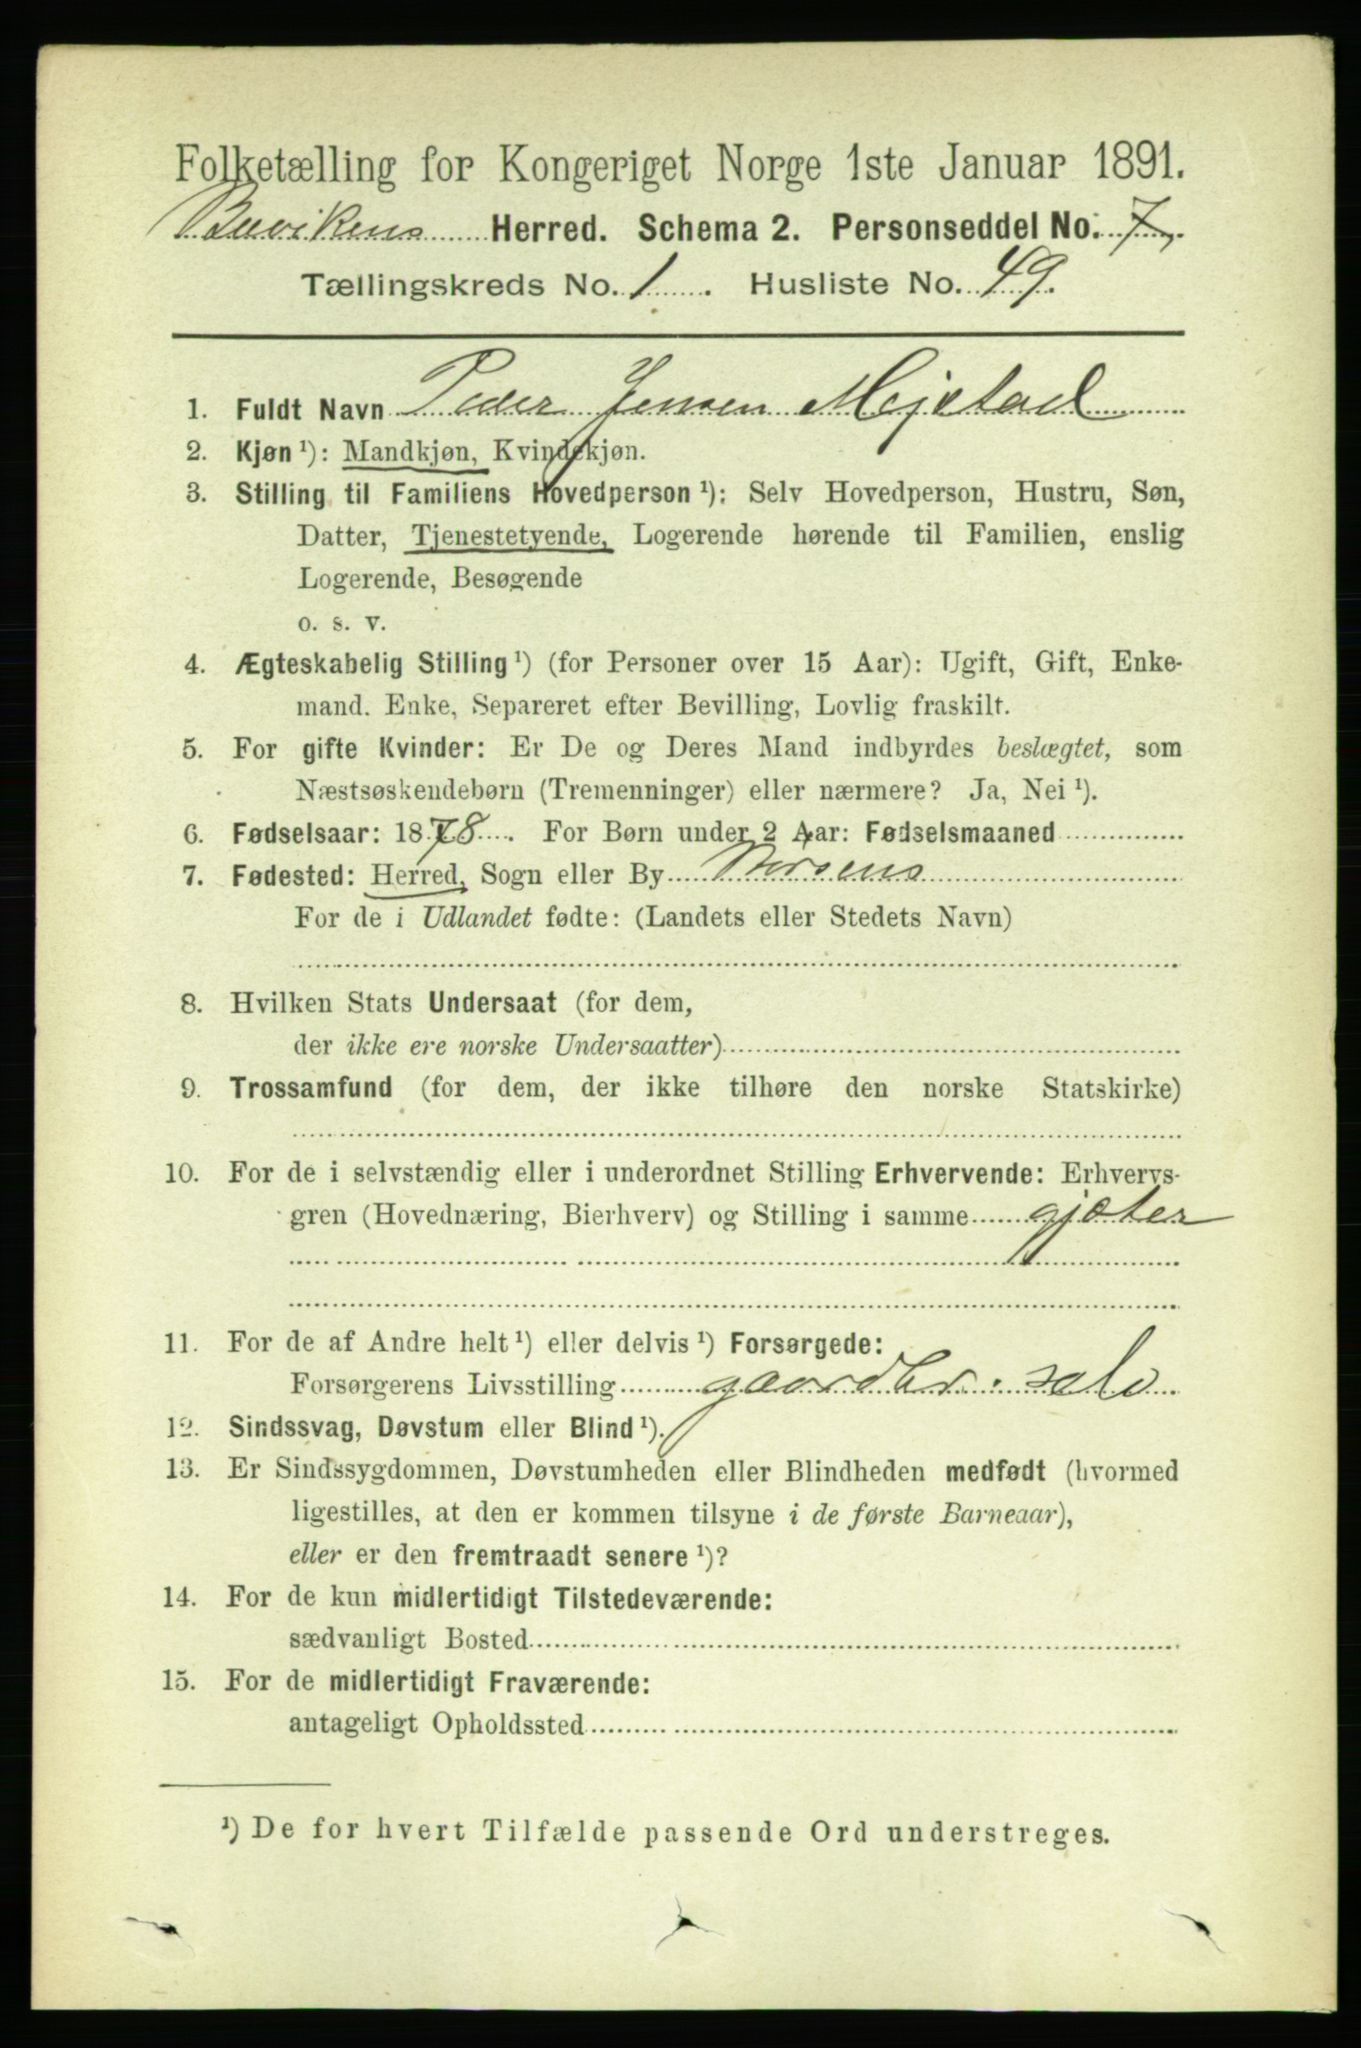 Folketælling for Kongeriget Norge 1ste Januar 1891.
Buvikens Herred. Schema 2. Personseddel No. 7.
Tællingskreds No. 1. Husliste No. 49.
1. Fuldt Navn Peder Jensen Mejstad
2. Kjøn ¹): Mandkjøn, Kvindekjøn.
3. Stilling til Familiens Hovedperson ¹): Selv Hovedperson, Hustru, Søn,
Datter, Tjenestetyende, Logerende hørende til Familien, enslig
Logerende, Besøgende
o. s. v.
4. Ægteskabelig Stilling ¹) (for Personer over 15 Aar): Ugift, Gift, Enke-
mand. Enke, Separeret efter Bevilling, Lovlig fraskilt.
5. For gifte Kvinder: Er De og Deres Mand indbyrdes beslægtet, som
Næstsøskendebørn (Tremenninger) eller nærmere? Ja, Nei ¹).
6. Fødselsaar: 1878. For Børn under 2 Aar: Fødselsmaaned
7. Fødested: Herred, Sogn eller By Borsens
For de i Udlandet fødte: (Landets eller Stedets Navn)
8. Hvilken Stats Undersaat (for dem,
der ikke ere norske Undersaatter)
9. Trossamfund (for dem, der ikke tilhøre den norske Statskirke)
10. For de i selvstændig eller i underordnet Stilling Erhvervende: Erhvervs-
gren (Hovednæring, Bierhverv) og Stilling i samme gjæter
11. For de af Andre helt ¹) eller delvis ¹) Forsørgede:
Forsørgerens Livsstilling gaardbr. selv
12. Sindssvag, Døvstum eller Blind ¹).
13. Er Sindssygdommen, Døvstumheden eller Blindheden medfødt (hvormed
ligestilles, at den er kommen tilsyne i de første Barneaar),
eller er den fremtraadt senere ¹)?
14. For de kun midlertidigt Tilstedeværende:
sædvanligt Bosted
15. For de midlertidigt Fraværende:
antageligt Opholdssted
¹) De for hvert Tilfælde passende Ord understreges.